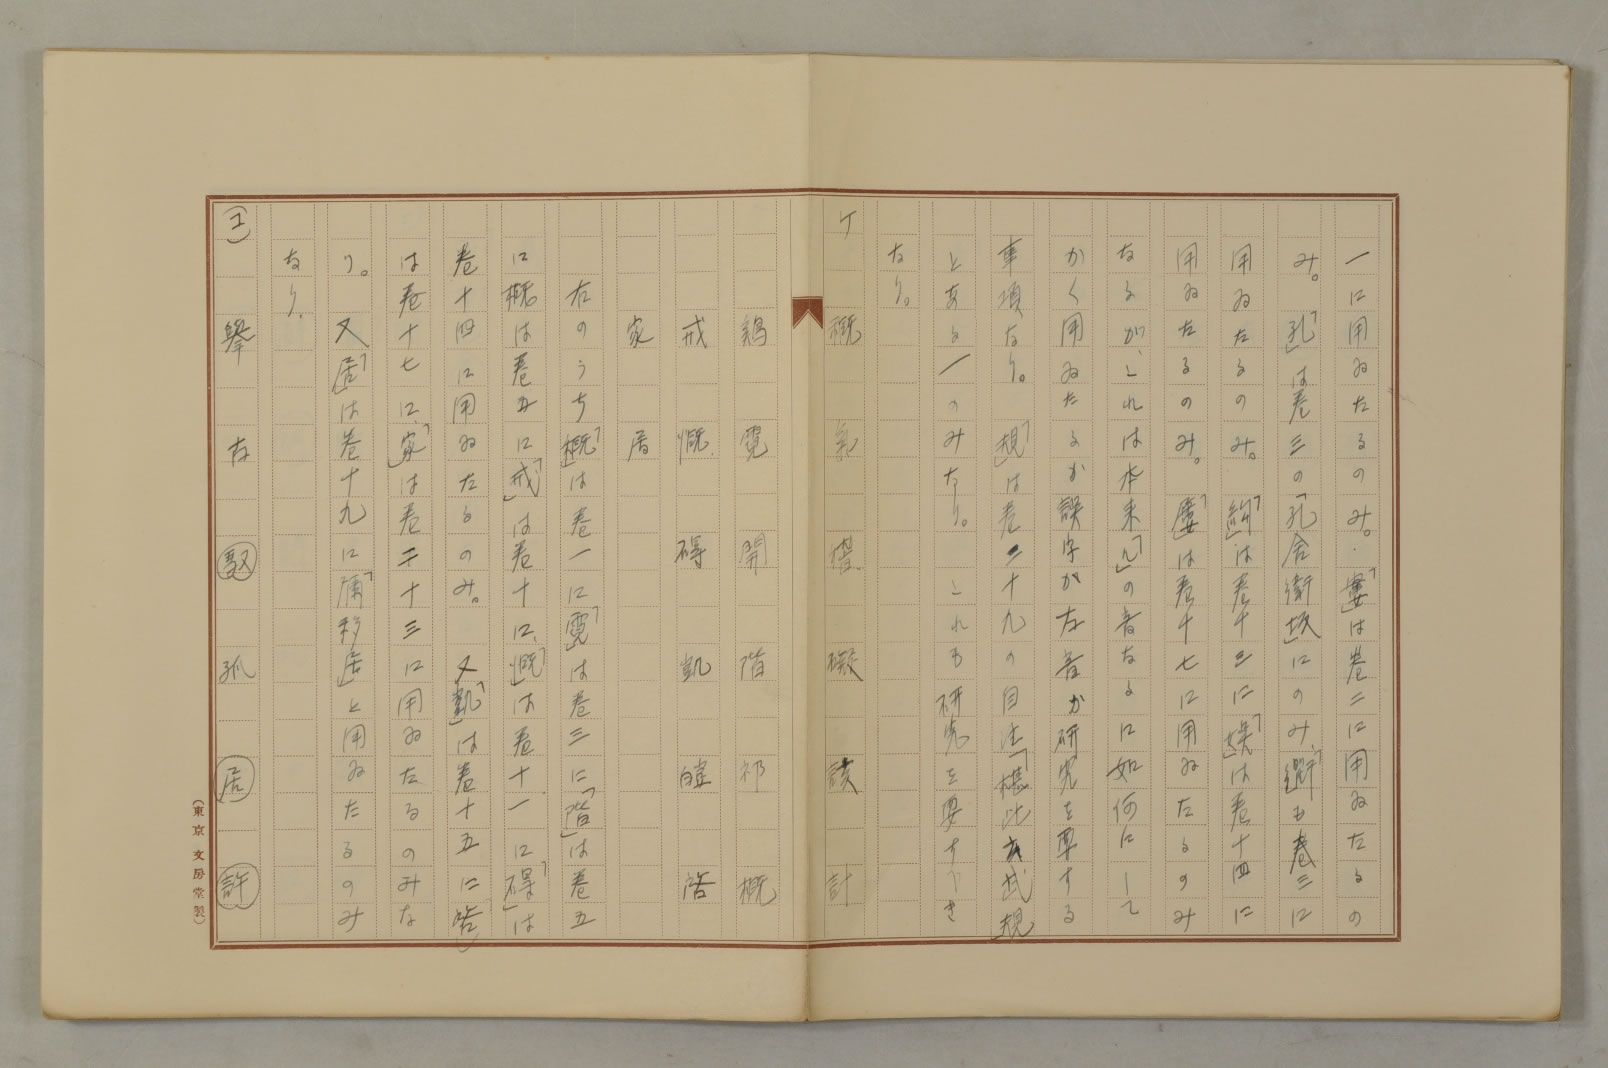 一に用ゐたるのみ。「寠」は巻二に用ゐたるの
み。「孔」は巻三の「孔舎衛坂」にのみ、も巻三に
用ゐたるのみ。は巻十三に「娯」は巻十四に
用ゐたるのみ。「屢」は巻十七に用ゐたるのみ
なるが、これは本来「ル」の音なるに如何にして
かく用ゐたるか誤字か古音か研究を要する
事項なり。「規」は巻二十九の自注「武規」
とある一のみなり。これも研究を要すべき
なり。
ケ 概 氣 礙 計
鶏 霓 開 階 祁 概
戒 慨 碍 凱 啓
家 居
右のうち「概」は巻一に「霓」は巻三に「階」は巻五
に概は巻五に「戒」は巻十に、「慨」は巻十一に「碍」は
巻十四に用ゐたるのみ。又「凱」は巻十五に「啓」
は巻十七に、「家」は巻二十三に用ゐたるのみな
り。又「居」は巻十九に「彌移居」と用ゐたるのみ
なり、
コ 擧 古 馭 孤 居 許
(東京 文房堂製)